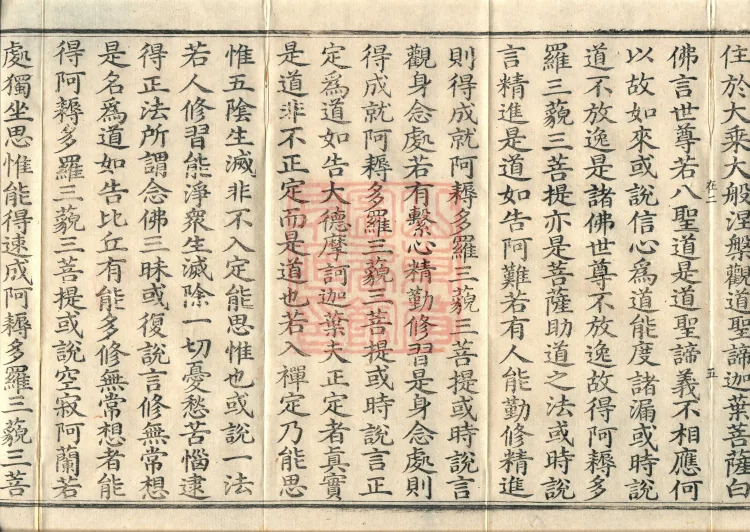 住於大乘大般涅槃觀道聖諦迦葉菩薩白
在二　五
佛言世尊若八聖道是道聖諦義不相應何
以故如來或說信心爲道能度諸漏或時說
道不放逸是諸佛世尊不放逸故得阿耨多
羅三藐三菩提亦是菩薩助道之法或時說
言精進是道如告阿難若有人能勤修精進
則得成就阿耨多羅三藐三菩提或時說言
觀身念處若有繫心精勤修習是身念處則
得成就阿耨多羅三藐三菩提或時說言正
定爲道如告大德摩訶迦葉夫正定者眞實
是道非不正定而是道也若入禪定乃能思
惟五陰生滅非不入定能思惟也或說一法
若人修習能淨衆生滅除一切憂愁苦惱逮
得正法所謂念佛三昧或復說言修無常想
是名爲道如告比丘有能多修無常想者能
得阿耨多羅三藐三菩提或說空寂阿蘭若
處獨坐思惟能得速成阿耨多羅三藐三菩